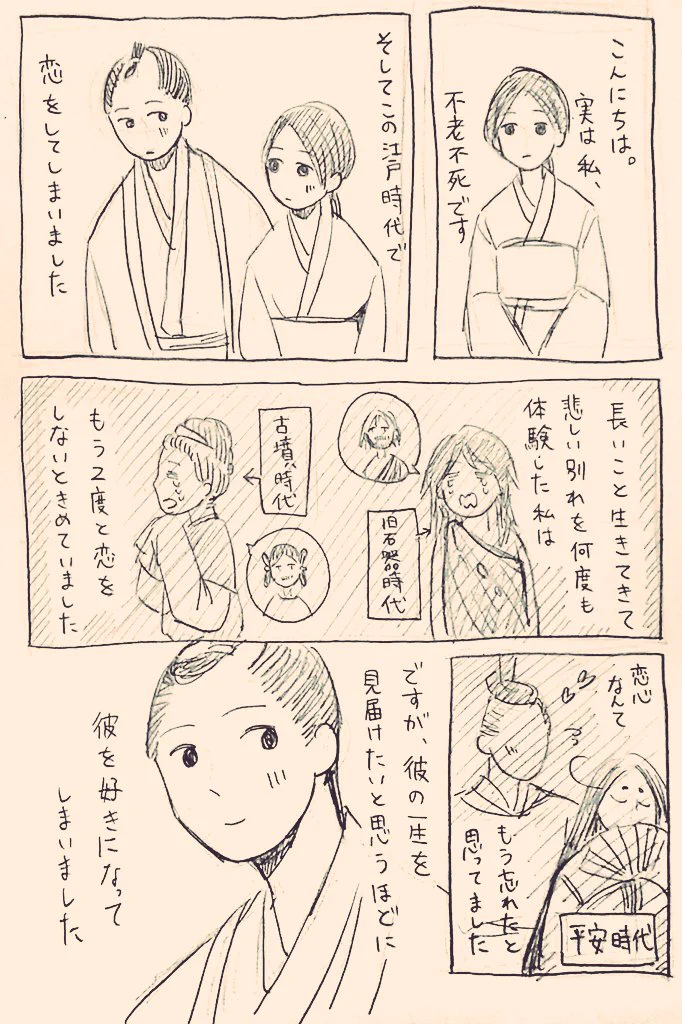 こんにちは。
実は私、
不老不死です
そしてこの江戸時代で
恋をしてしまいました
長いこと生きてきて
悲しい別れを何度も
体験した私は
旧石器時代
古墳時代
もう2度と恋を
しないときめていました
恋心
なんて
もう忘れたと
思ってました
平安時代
ですが、彼の一生を
見届けたいと思うほどに
彼を好きになって
しまいました